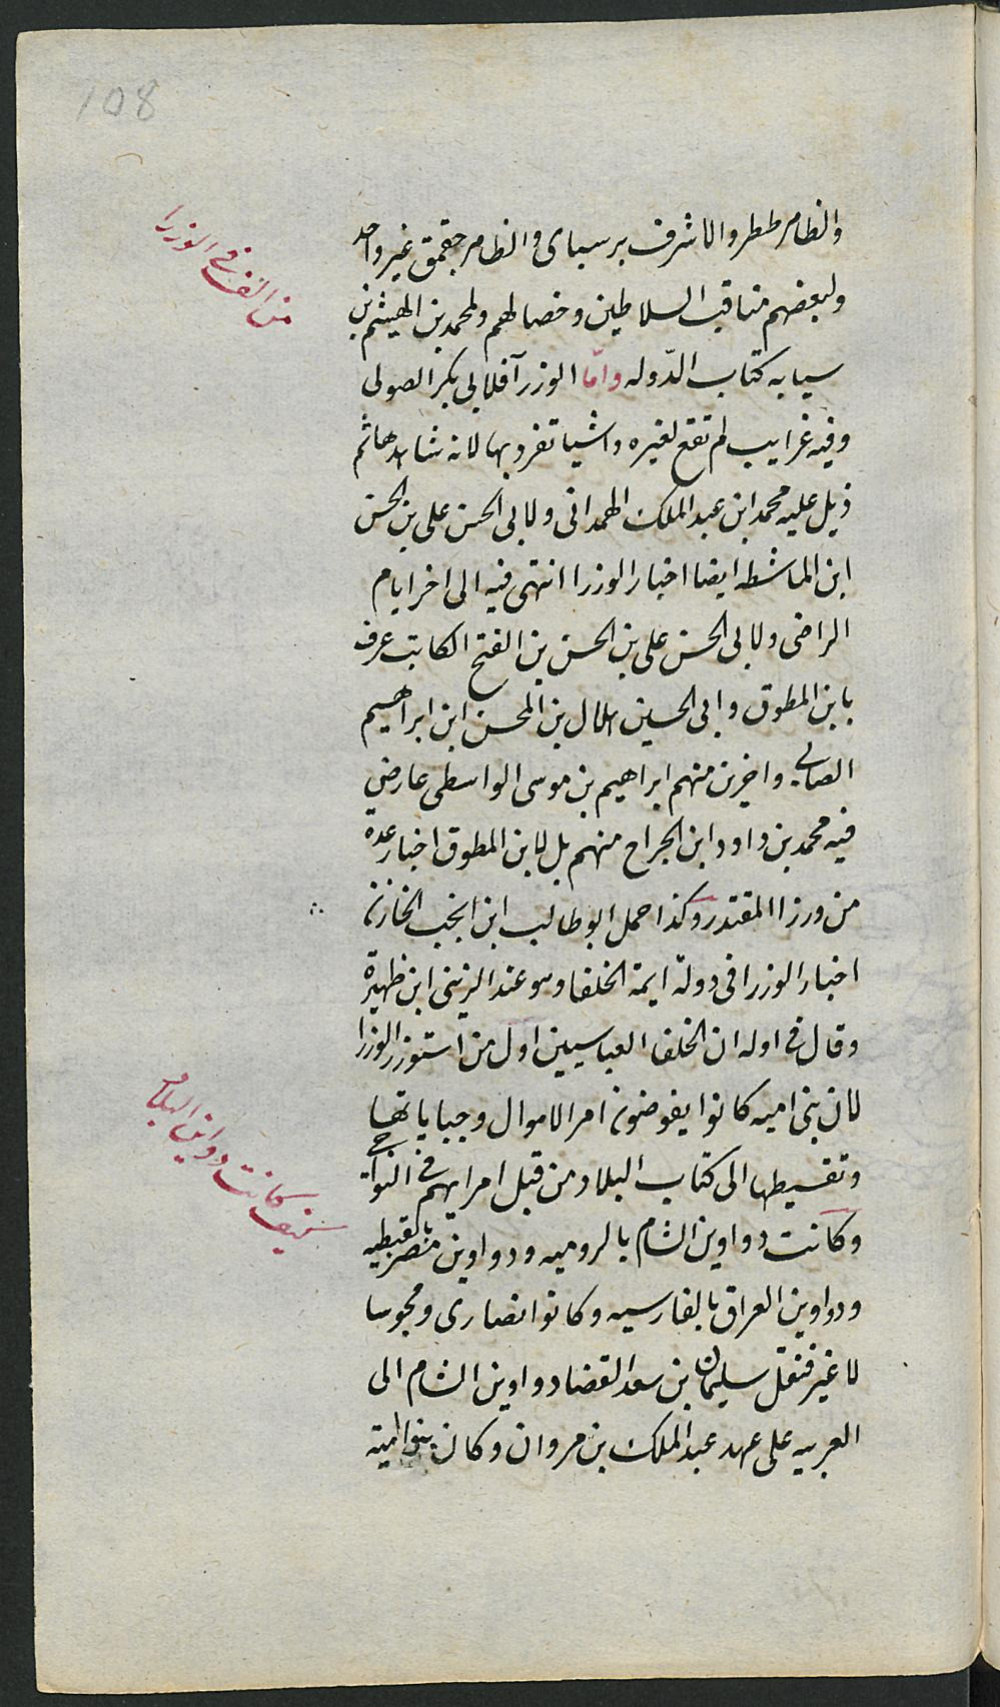 108
من الف في الوزرا
والظاهر ططر والاشرف برسباى والظاهر جقمق غير واحد
ولبعضهم مناقب السلاطين وخصالهم ولمحمد بن الهيثم بن
سيابه كتاب الدّوله وامّا الوزرآ فلابى بكر الصولى
وفيه غرايب لم تقع لغيره واشيا تفرد بها لانه شاهدها ثم
ذيل عليه محمد ابن عبد الملك الهمدانى ولابى الحسن على بن الحسن
ابن الماشطه ايضا اخبار الوزرا انتهى فيه الى اخر ايام
الراضى ولابى الحسن على بن الحسن بن الفتح الكاتب عرف
بابن المطوق وابى الحسين هلال بن المحسن ابن ابراهيم
الصابى واخرين منهم ابراهيم بن موسى الواسطى عارض
فيه محمد بن داود ابن الجراح منهم بل لابن المطوق اخبار عدة
من وزرا المقتدر وكذا عمل ابو طالب ابن انجب الخازن
اخبار الوزرا فى دولة ايمة الخلفا وهو عند الزينى ابن ظهيرة
وقال فى اوله ان الخلفا العباسيين اول من استوزر الوزرا
لان بنى اميه كانوا يفوضون امر الاموال وجباياتها
وتقسيطها الى كتاب البلاد من قبل امرايهم فى النواحى
كيف كانت دواوين البلاد
وكانت دواوين الشام بالروميه ودواوين مصر بالقبطيه
ودواوين العراق بالفارسيه وكانوا نصارى ومجوسا
لا غير فنقل سليمان بن سعد القضا دواوين الشام الى
العربيه على عهد عبد الملك بن مروان وكان بنو امية